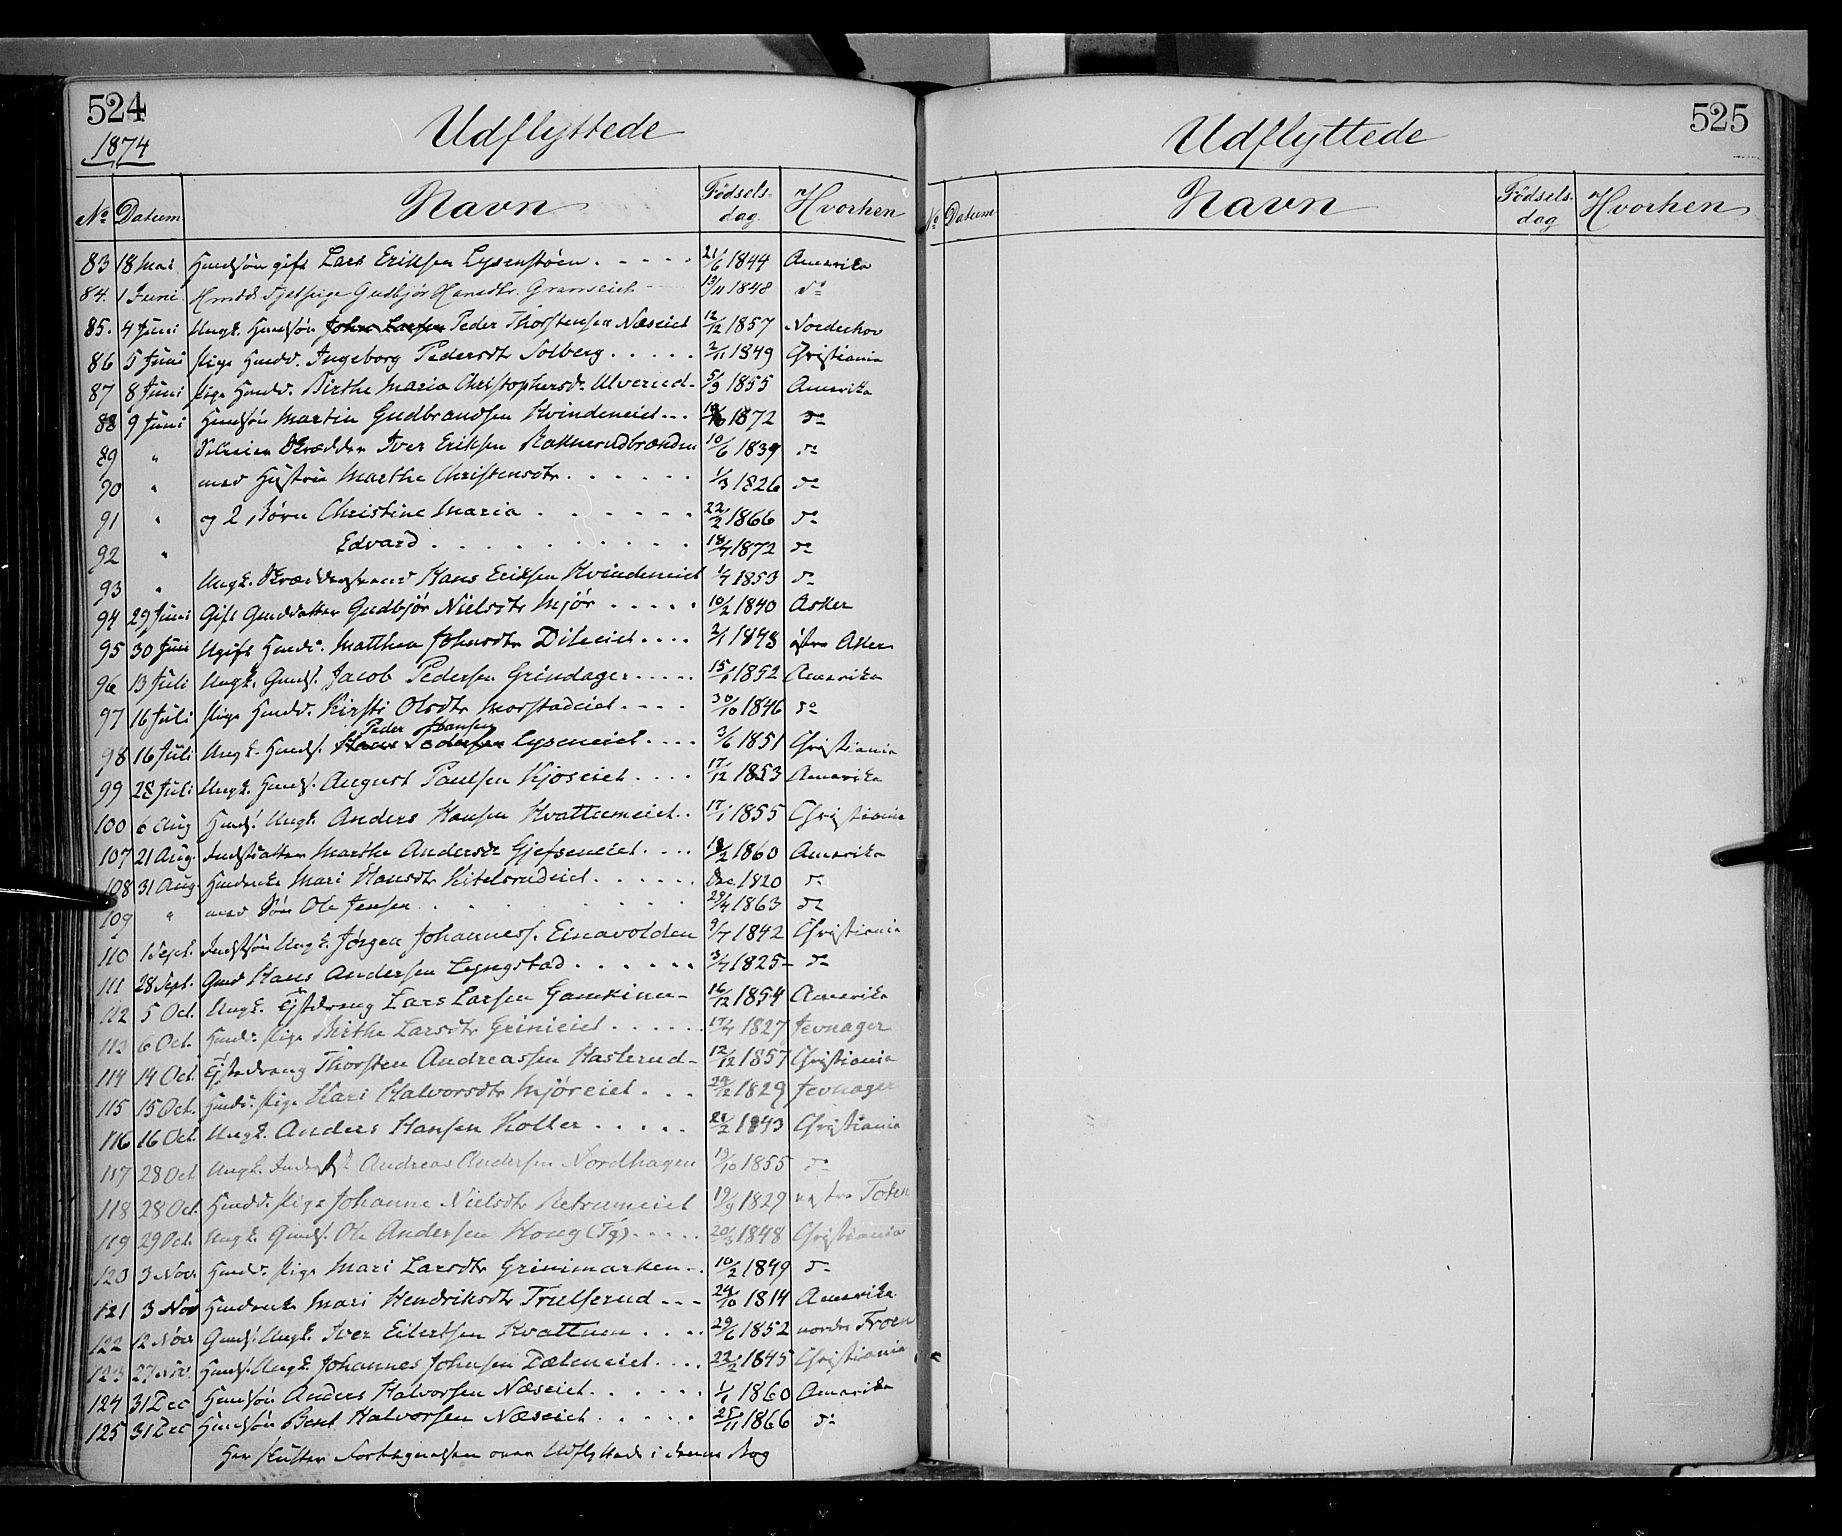 524
1874
Udflyttede
No Datum Navn Fødselsdag Hvorhen
83 18 Mai Husmsøn gift Lars Eriksen Lysenstøen 21/6 1844 Amerika
84. 1 Juni Pige Gudbjør Hansdtr. Granseiet 1848 do
85. 4 Juni Ungk. Husmsøn John Larsen Peder Thorstensen Næseiet 12/12 1857 Norderhov
86 5 Juni Pige Husmd. Ingeborg Pedersdtr Solberg 2/11 1849 Christiania
87 8 Juni Pige Husmd. Birthe Maria Christophersdr. Ulverud 5/9 1855 Amerika
88 9 Juni Husmsøn Martin Gudbrandsen Kvindeneiet 1872 do
89 " Skrædder Iver Eriksen Rakkerudbrænden 10/6 1839 do
90 " med Hustru Marthe Christensdtr 1/3 1826 do
91 " og 2 Børn Christine Maria 22/2 1866 do
92 " Edvard 18/4 1872 do
93 " Ungk. Hans Eriksen Kvindeneiet 1/7 1853 do
94 29 Juni Gift Gmddatter Gudbjør Nielsdtr Mjør 10/2 1840 Asker
95 30 Juni Ugift Husmd. Matthea Johnsdtr Dileiet 2/1 1848 Asker
96 13 Juli Ungk. Gmds. Jacob Pedersen Grindager 1852 Amerika
97 16 Juli Pige Husmd. Kirsti Olsdtr Morstadeiet 30/10 1846 do
Peder Hansen
98 16 Juli Ungk. Husmds. Hans Pedersen Lyseneiet 3/6 1851 Christiania
99 28 Juli Ungk. Husmds. August Paulsen Kjoseiet 17/12 1853 Amerika
100 6 Aug Husmds. Ungk. Anders Hansen Kvattumeiet 17/1 1855 Christiania
107 21 Aug. Indstdatter Marthe Andersdr Gjefseneiet 18/2 1860 Amerika
108 31 Aug Husmdenke Mari Hansdtr Kitelsrudeiet Dec. 1820 do
109 " med Søn Ole Jensen 29/4 1863 do
110 1 Sept. Indstsøn Ungk. Jørgen Johanness. Einavolden 9/7 1842 Christiania
111 28 Sept. Gmd Hans Andersen Lyngstad 3/7 1825 do
112 5 Oct. Ungk. Gjstdreng Lars Larsen Gamkinn 16/12 1854 Amerika
113 6 Oct. Husmd. Pige Birthe Larsdtr Grinieiet 17/4 1827 Jevnager
114 14 Oct. Gjstdreng Thorsten Andreassen Haslerud 12/12 1857 Christiania
115 15 Oct. Husmd. Pige Kari Halvorsdtr Mjøreiet 1829 Jevnager
116 16 Oct. Ungk. Anders Hansen Koller 21/2 1843 Christiania
117 28 Oct Ungk. Andreas Andersen Nordhagen 19/10 1855 do
118 28 Oct. Husmd. Pige Johanne Nielsdtr Retrumeiet 19/9 1829 Toten
119 29 Oct. Ungk. Gmds. Ole Andersen Houg (Tg) 1848 Christiania
120 3 Nov. Husmd. Pige Mari Larsdtr Grinimarken 10/2 1849 do
121 3 Nov Husmdenke Mari Hendriksdtr Trulserud 24/10 1814 Amerika
122 12 Nov. Gmds. Ungk. Iver Eilertsen Kvattum 29/6 1852 nordre Froen
123 27 Nov. Husmds. Ungk. Johannes Johnsen Dæleneiet 22/2 1845 Christiania
124 31 Dec Husmsøn Anders Halvorsen Næseiet 1/1 1860 Amerika
125 31 Dec Husmsøn Bent Halvorsen Næseiet 25/11 1866 do
Her slutter Fortegnelsen over Udflyttede i denne Bog
525
Udflyttede
No Datum Navn Fødselsdag Hvorhen